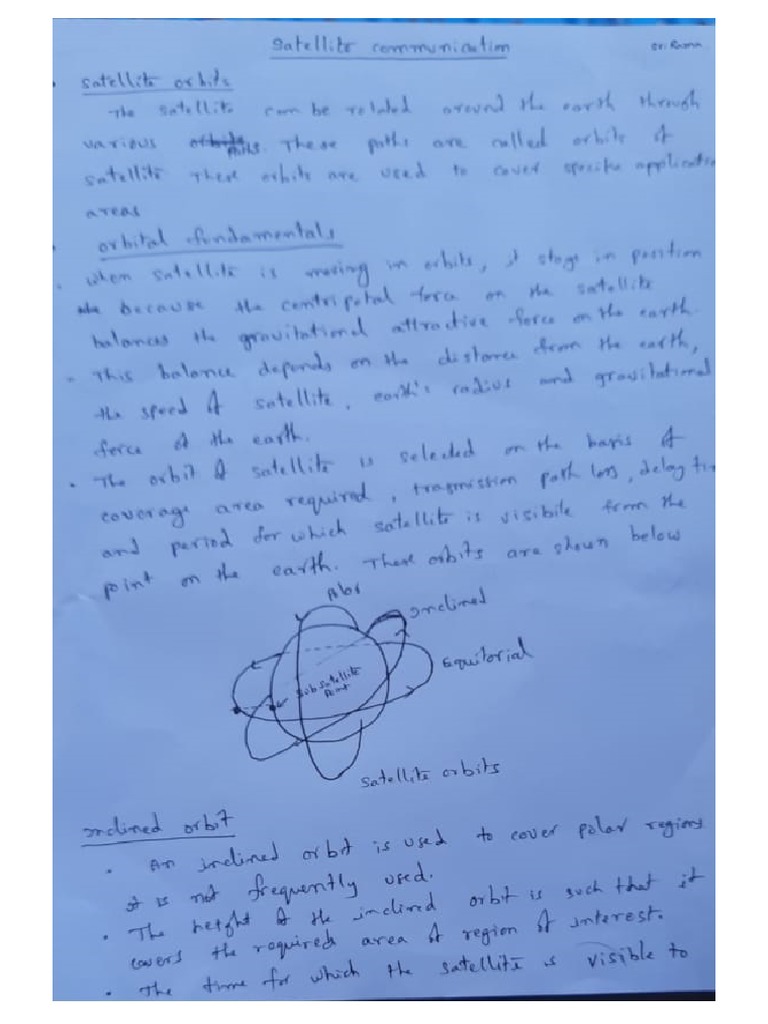 Satellite communication
Satellite orbits
The satellite can be rotated around the earth through
various paths. These paths are called orbits of
satellite These orbits are used to cover specific application
areas
orbital fundamentals
When satellite is moving in orbits, it stays in position
because the centripetal force on the satellite
balances the gravitational attractive force on the earth.
This balance depends on the distance from the earth,
the speed of satellite, earth's radius and gravitational
force of the earth.
The orbit of satellite is selected on the basis of
coverage area required, trasmission path loss, delay time
and period for which satellite is visibile from the
point on the earth. These orbits are shown below
Inclined
Equitorial
Subsatellite
Point
Satellite orbits
Inclined orbit
An inclined orbit is used to cover polar regions
it is not frequently used.
The height of the inclined orbit is such that it
covers the required area of region of interest.
The time for which the satellite is visible to